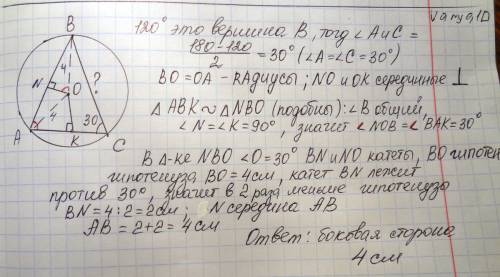 Varya1D
120° это вершина B, тогд ∠A и C =
180-120
2
= 30° (∠A = ∠C = 30°)
BO = OA - RAдиусы; NO и OK серединные ⊥
△ ABK ∾ △ NBO (подобны): ∠B общий,
∠N = ∠K = 90°, значит ∠NOB = ∠BAK = 30°
В Δ-ке NBO ∠O = 30° BN и NO катеты, BO гипотен
гипотенуза BO = 4см, катет BN лежит
против 30°, значит в 2 раза меньше гипотенузы
BN = 4:2 = 2см; N середина AB
AB = 2+2 = 4 см
Ответ: боковая сторона
4 см
B
4
N
?
O
4
30
A
K
C